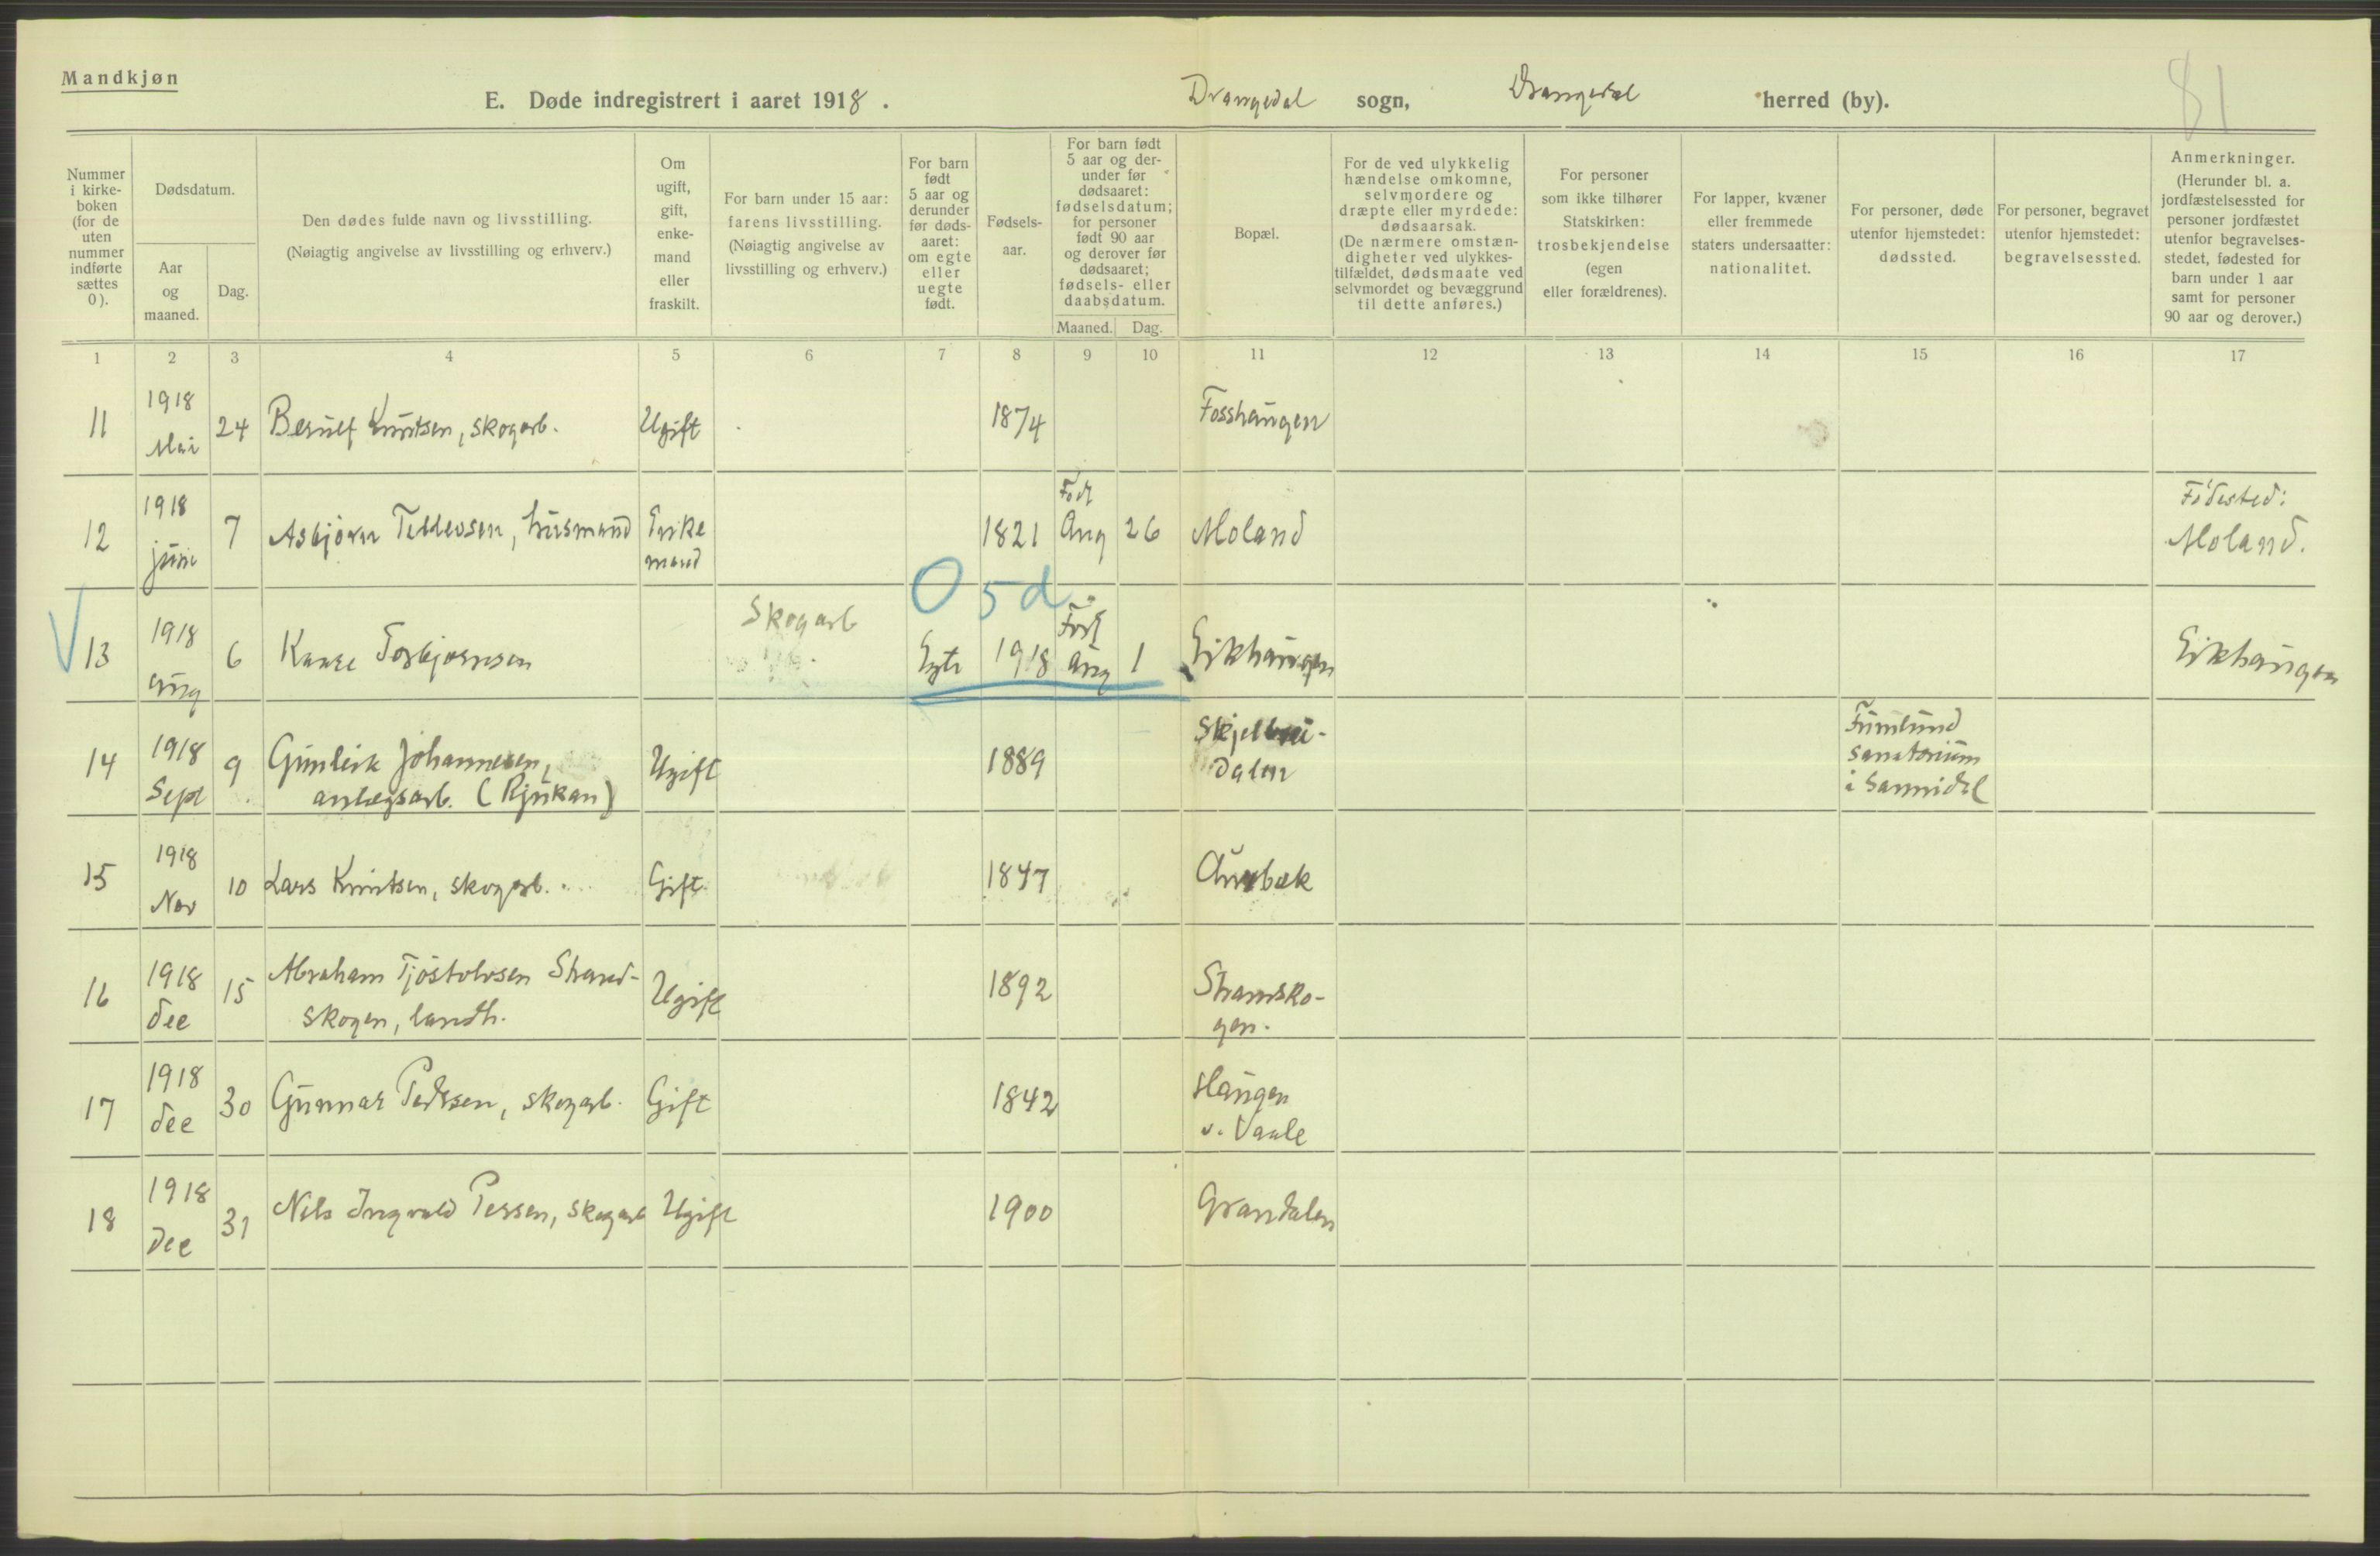 Mandkjøn
E. Døde indregistrert i aaret 1918.
Drangedal sogn, Drangedal herred (by).
81
Nummer i kirke-boken (for de uten nummer indførte sættes 0).
Dødsdatum.
Aar og maaned.
Dag.
Den dødes fulde navn og livsstilling.
(Nøiagtig angivelse av livsstilling og erhverv.)
Om ugift, gift, enke-mand eller fraskilt.
For barn under 15 aar: farens livsstilling.
(Nøiagtig angivelse av livsstilling og erhverv.)
For barn født 5 aar og derunder før døds-aaret: om egte eller uegte født.
Fødsels-aar.
For barn født 5 aar og der-under før dødsaaret: fødselsdatum; for personer født 90 aar og derover før dødsaaret; fødsels- eller daabsdatum.
Maaned. Dag.
Bopæl.
For de ved ulykkelig hændelse omkomne, selvmordere og dræpte eller myrdede: dødsaarsak.
(De nærmere omstæn-digheter ved ulykkes-tilfældet, dødsmaate ved selvmordet og bevæggrund til dette anføres.)
For personer som ikke tilhører Statskirken: trosbekjendelse (egen eller forældrenes).
For lapper, kvæner eller fremmede staters undersaatter: nationalitet.
For personer, døde utenfor hjemstedet: dødssted.
For personer, begravet utenfor hjemstedet: begravelsessted.
Anmerkninger.
(Herunder bl. a. jordfæstelsessted for personer jordfæstet utenfor begravelses-stedet, fødested for barn under 1 aar samt for personer 90 aar og derover.)
1 2 3 4 5 6 7 8 9 10 11 12 13 14 15 16 17
11 1918 Mai 24 Knutsen, skogarb. Ugift 1874 Fosshaugen
12 1918 juni 7 Asbjørn Tellevsen, husmand Enke mand 1821 Født Aug 26 Moland Fødested: Moland.
0 5 d.
13 1918 Aug 6 Kaare Torbjørnsen Skogarb Egte 1918 Født Aug 1 Eikhaugen Eikhaugen
14 1918 Sept 9 Gunleik Johannesen,
anlegsarb. (Rjukan) Ugift 1889 dalen sanatorium i Sannidal
15 1918 Nov 10 Lars Knutsen, skogarb. Gift 1847
16 1918 Dec 15 Abraham Tjostolvsen Strand-
skogen, landh. Ugift 1892
17 1918 Dec 30 Gunnar Pedersen, skogarb. Gift 1842 Haugen
v. Vaale
18 1918 Dec 31 Nils Ingvald Terssen, skogarb Ugift 1900 Grandalen